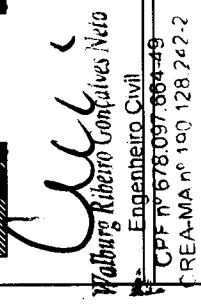 Walburg Ribeiro Gonçalves Neto
Engenheiro Civil
CPF nº 678.097.664-49
CREA-MA nº 190 128.242-2